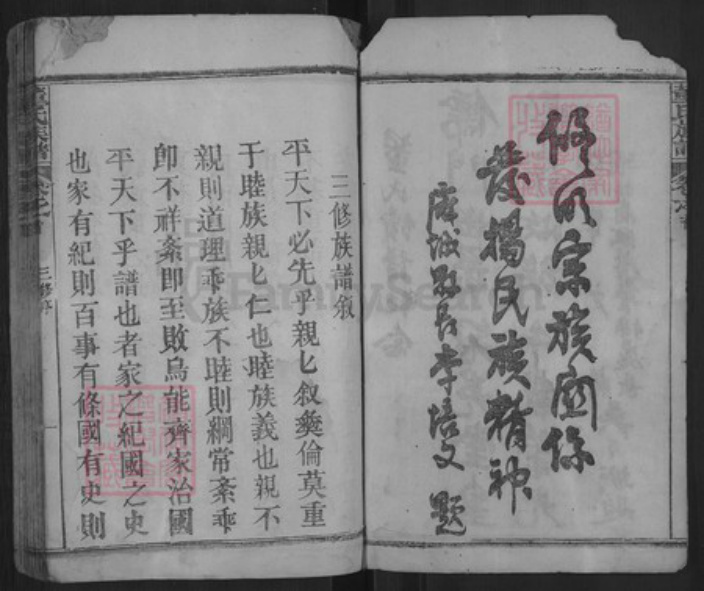 修明宗族關係
發揚民族精神
縣長李培文 題
三修族譜叙
平天下必先乎親匕叙彜倫莫重
于睦族親匕仁也睦族義也親不
親則道理乖族不睦則綱常紊乖
卽不祥紊卽至敗烏能齊家治國
平天下乎譜也者家之紀國之史
也家有紀則百事有條國有史則
氏族譜
三修序
FamilySearch